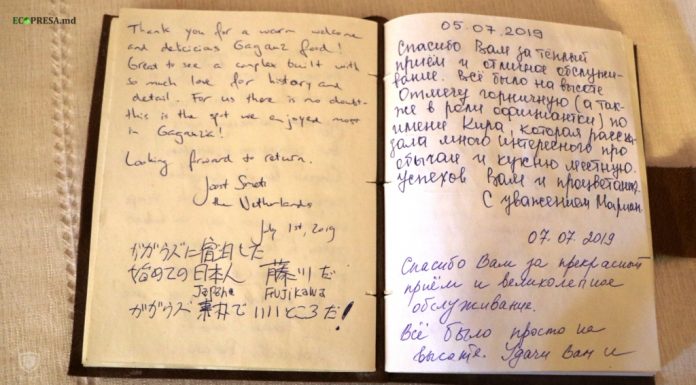 ECOPRESA.md
Thank you for a warm welcome
and delicious Gagauz food!
Great to see a complex built with
so much love for history and
detail. For us there is no doubt -
this is the spot we enjoyed most
in Gagauzia!
Looking forward to return.
Joost
the Netherlands
July 1st, 2019
ガガウズに宿泊した
始めての日本人 藤川だ
Japane FUJIKAWA
ガガウズ 素朴で いいところだ!
05.07.2019
Спасибо Вам за тёплый
приём и отличное обслужи-
вание. Всё было на высоте
Отмечу горничную (а так-
же в роли официантки) по
имени Кира, которая расска-
зала много интересного про
обычаи и кухню местную.
Успехов Вам и процветания.
С уважением Мариан.
07.07.2019
Спасибо Вам за прекрасный
приём и великолепное
обслуживание.
Всё было просто на
высоте. Удачи Вам и